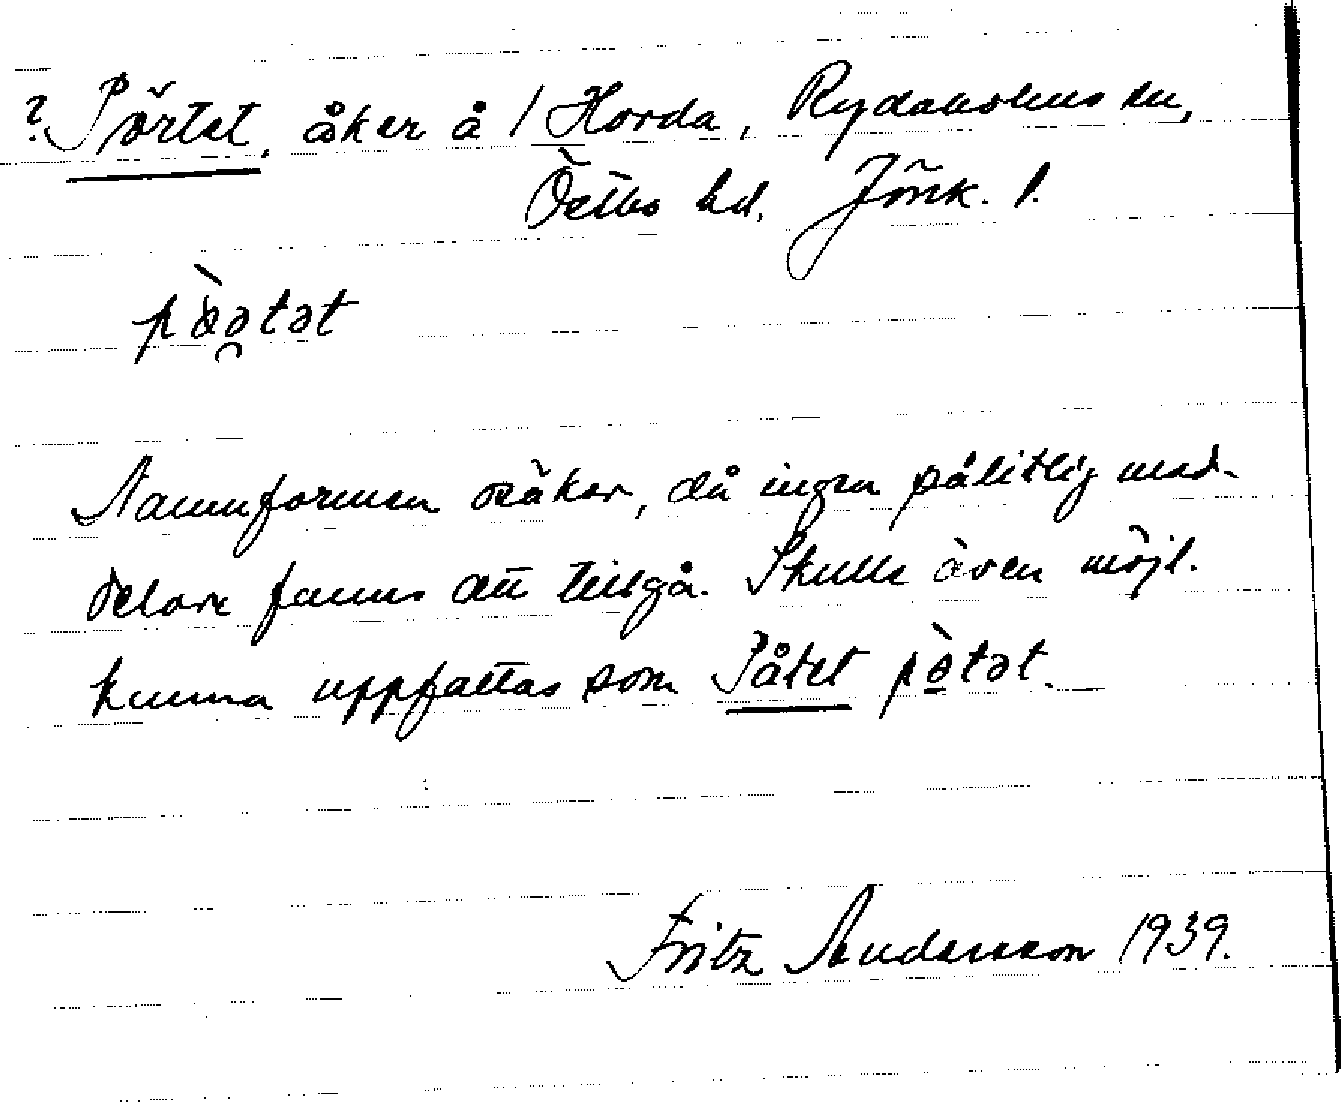 ? Pörtet, åker å 1 Horda, Rydaholms sn,
Östbo hd, Jönk. l.
pàə̯tət
Namnformen osäker, då ingen pålitlig med-
delare fanns att tillgå. Skulle även möjl.
kunna uppfattas som Påtet pə̀tət.
Fritz Andersson 1939.